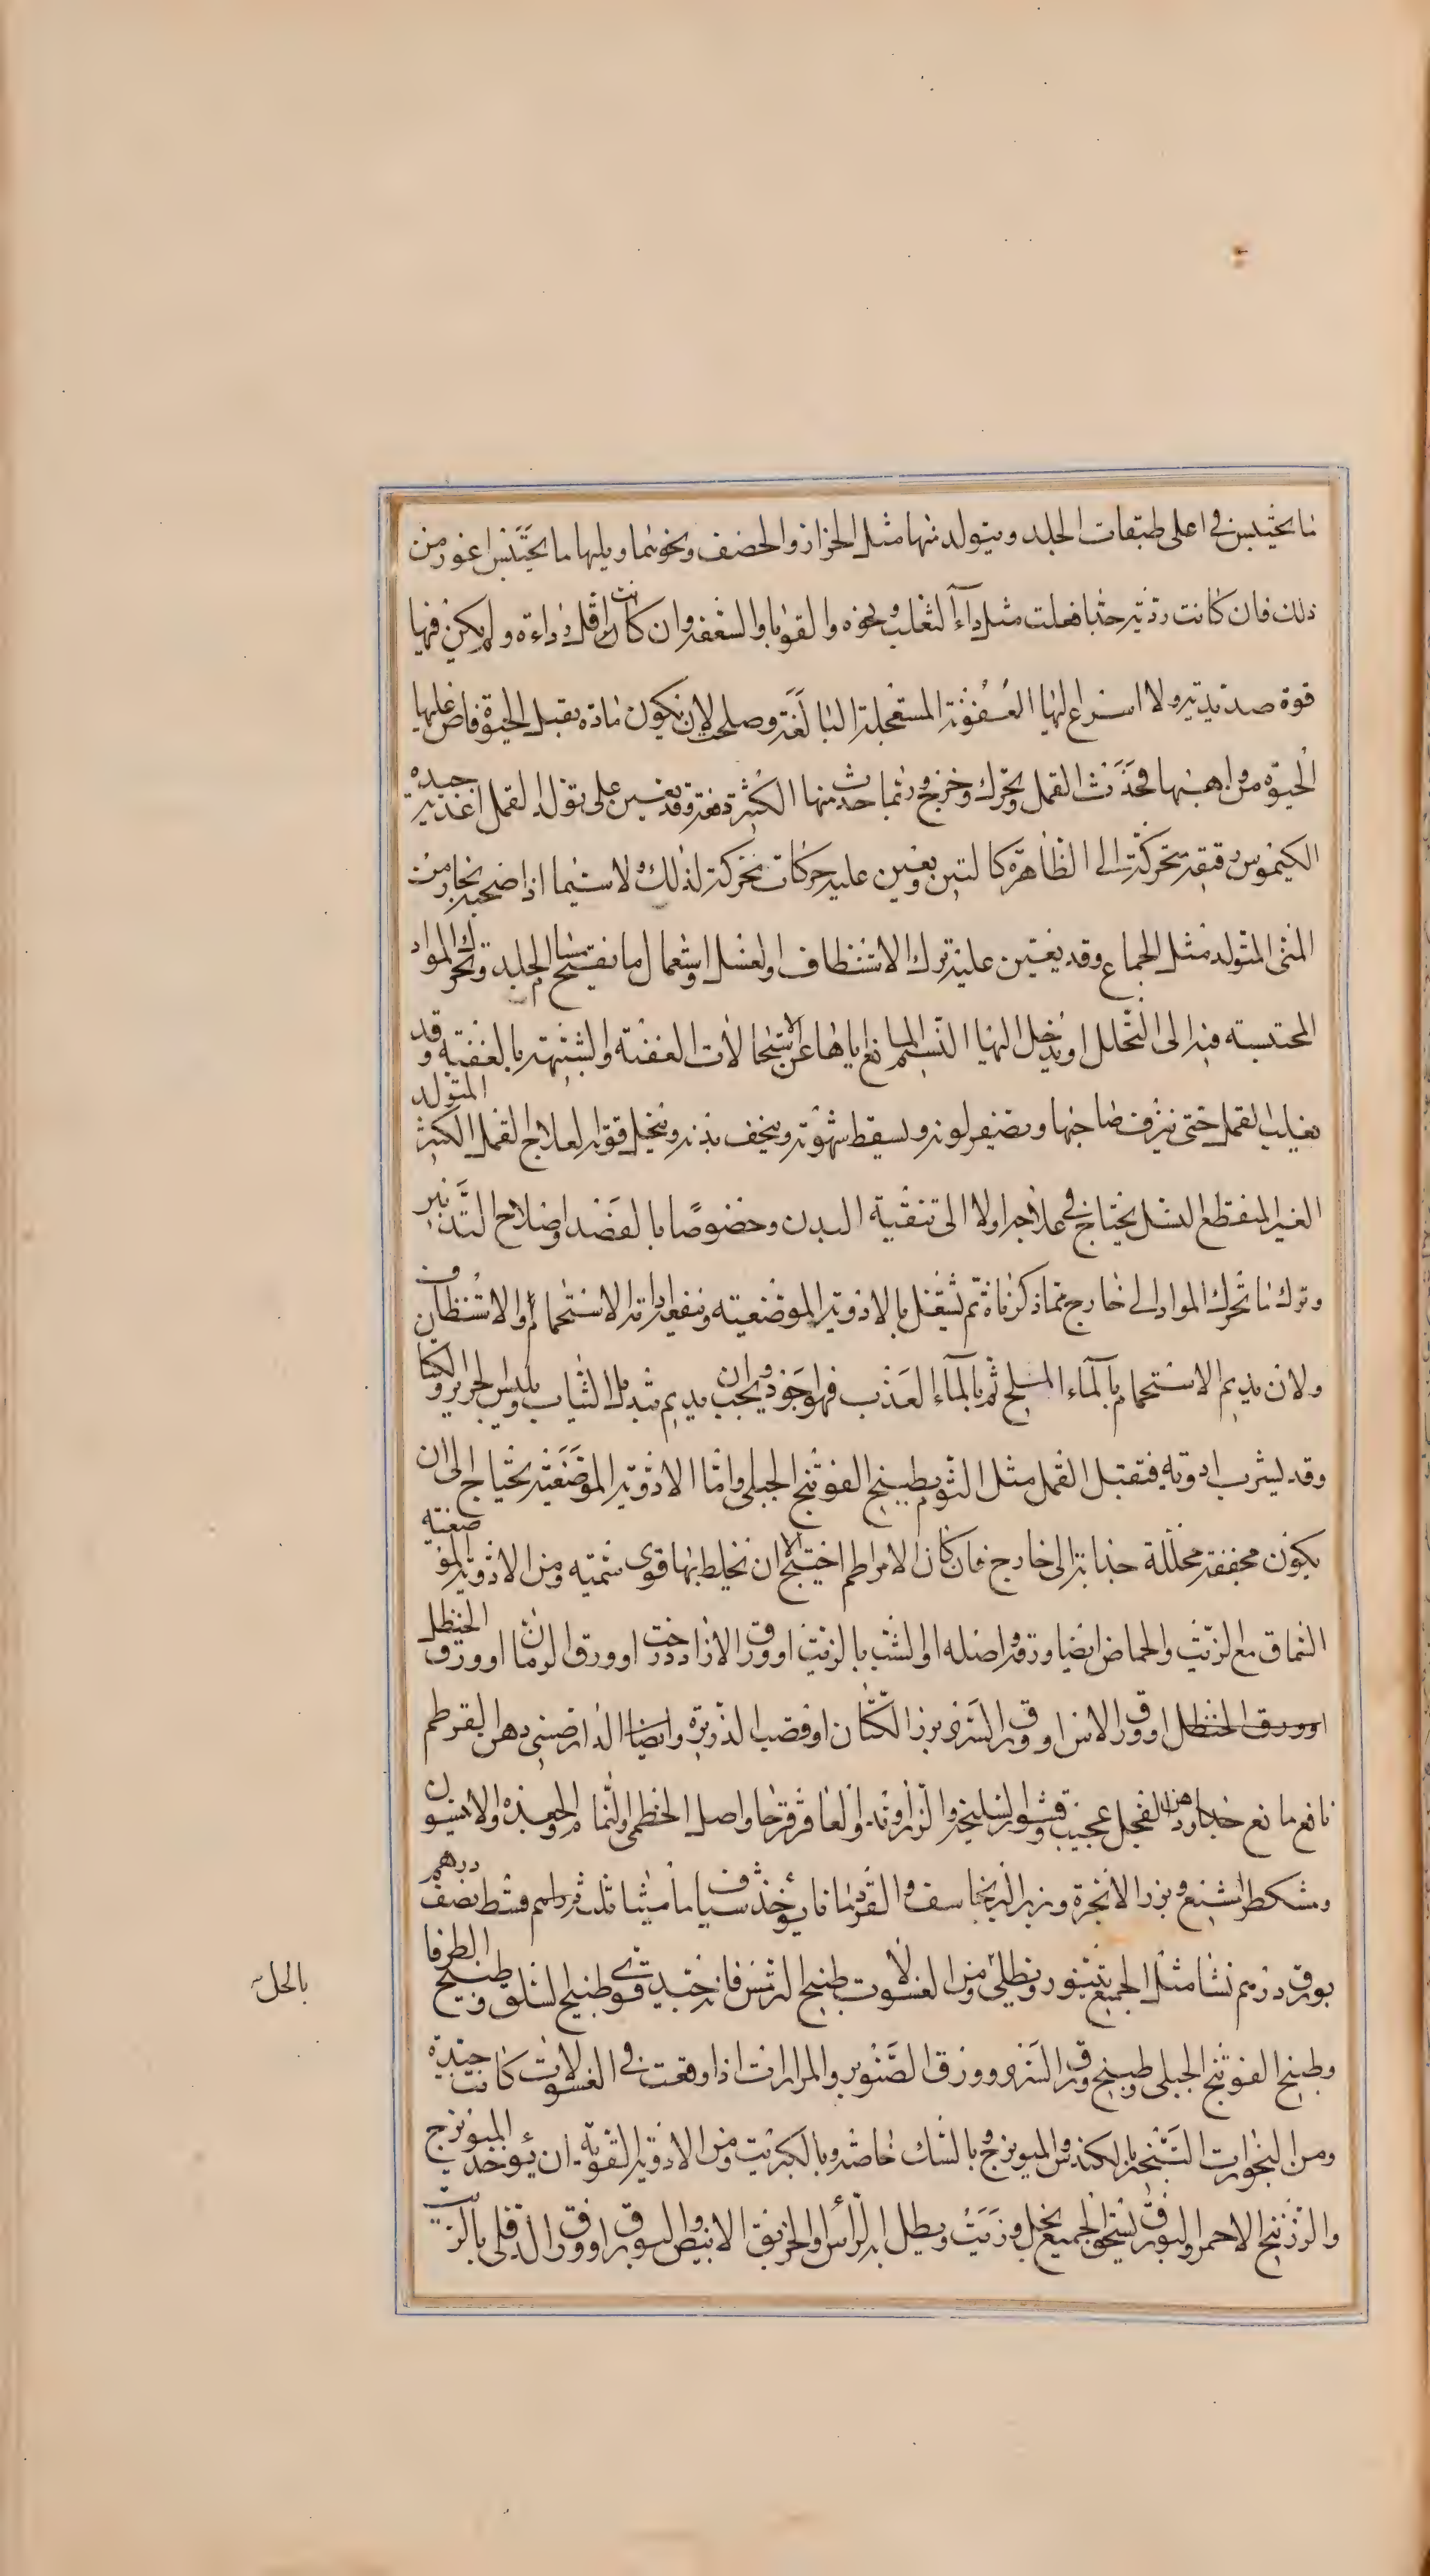 ما يحتبس في اعلى طبقات الجلد ويتولد منها مثل الحزاز والحصف ونحوهما ويليها ما يحتبس اغور من
ذلك فان كانت رديئة جدا فعلت مثل داء الثعلب ونحوه والقوبا والسعفة وان كانت اقل رداءة ولم يكن فيها
قوة صديدية ولا اسرع اليها العفونة المستعجلة البالغة وصلحت لان يكون مادة يقبل الحيوة فاض عليها
الحيوة من واهبها فحدث القمل وتحرك وخرج وربما حدث منها الكثير دفعة وقد يعين على تولد القمل اغذية جيدة
الكيموس رقيقة متحركة الى الظاهر كالتين ويعين عليه حركات تحركه لذلك ولا سيما اذا صحبه بخار من
المنى المتولد مثل الجماع وقد يعين عليه ترك الاستنظاف او الغسل واستعمال ما يفتح مسام الجلد وتحرك المواد
المحتبسة فيه الى التحلل او يدخل اليها النسيم المانع اياها عن الاستحالات العفنة والشبيهة بالعفنية وقد
يغلب القمل حتى ينزف صاحبها ويصفر لونه ويسقط شهوته وينحف بدنه وينحل قوته لعلاج القمل الكثير المتولد
الغير المنقطع النسل يحتاج في علاجه اولا الى تنقية البدن وخصوصا بالفصد واصلاح التدبير
وترك ما تحرك المواد الى خارج مما ذكرناه ثم يشتغل بالادوية الموضعية وينفع ادامة الاستحمام والاستنظاف
ولان يديم الاستحمام بالماء المملح ثم بالماء العذب فهو اجود ويجب ان يديم تبديل الثياب وليس الحرير والكتان
وقد يشرب ادوية فتقتل القمل مثل الثوم بطبيخ الفوتنج الجبلى واما الادوية الموضعية يحتاج الى ان
يكون مجففة محللة جذابة الى خارج فان كان الامر اطم احتيج الا ان نخلط بها قوى سمية ومن الادوية الموضعية
السماق مع الزيت والحماض ايضا ورقه واصله او الشب بالزيت او ورق الازاددرخت او ورق الرمان او ورق الحنظل
او ورق الحنظل او ورق الاس او ورق السرو بزر الكتان او قصب الذريرة وايضا الدارصينى دهن القرطم
نافع مانع جدا ودهن الفجل عجيب وقشور السليخة والزراوند والعاقرقرحا واصل الخطمى والنمام والجعدة والانيسون
ومشكطرامشيع وبزر الانجرة وبزر البرنجاسف والقردمانا يؤخذ سيساميثا ثلث دراهم قسط نصف درهم
بورق درهم نشا مثل الجميع يتنور ويطلى ومن الغسولات طبيخ الترمس فانه جيد قوى وطبيخ السلق وطبيخ الطرفا
وطبيخ الفوتنج الجبلى وطبيخ ورق السرو وورق الصنوبر والمرارات اذا وقعت في الغسولات كانت جيدة
ومن البخورات التبخير بالكندس والميويزج وبالسك خاصة وبالكبريت ومن الادوية القوية ان يؤخذ الميويزج
والزرنيخ الاحمر والبورق يسحق الجميع بخل وزيت ويطلى به الراس والخربق الابيض والبورق او ورق الدفلى بالزيت
بالخل